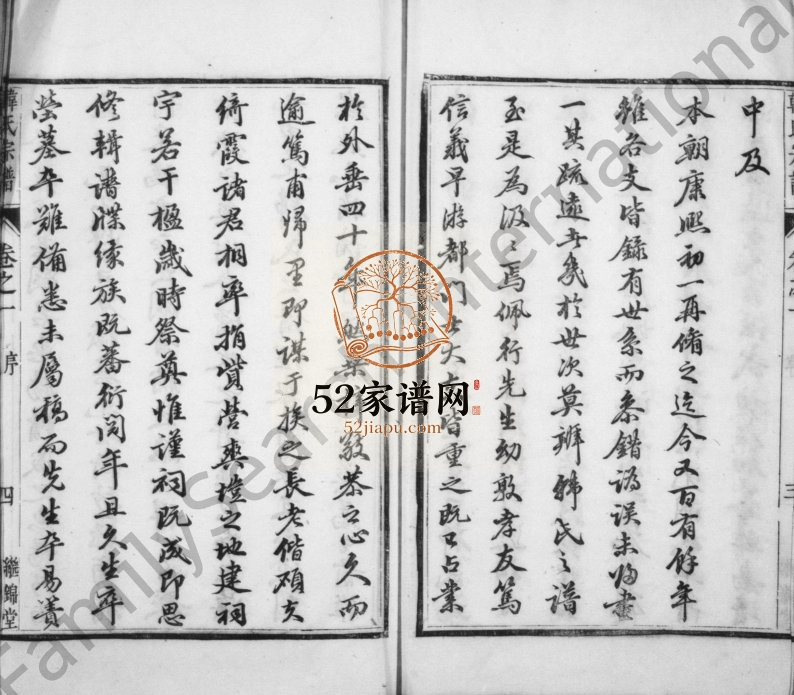 中及
本朝康熙初一再脩之迄今又百有餘年
雖各支皆錄有世系而叅錯譌誤未歸畫
一其疏遠者幾於世次莫辨韓氏之譜
至是為汲〻焉佩行先生幼敦孝友篤
信義早游都門 大 皆重之既而占業
於外垂四十年 桑 敬恭之心久而
逾篤甫歸里即謀于族之長老偕碩夫
綺霞諸君相率捐貲營爽塏之地建祠
宇若干楹歲時祭奠惟謹祠既成即思
修輯譜牒緣族既蕃衍閱年且久生卒
塋墓卒難備悉未屬稿而先生卒易簀
韓氏宗譜
卷之一
序
四
繼錦堂
三
52家谱网
52jiapu.com
FamilySearch International